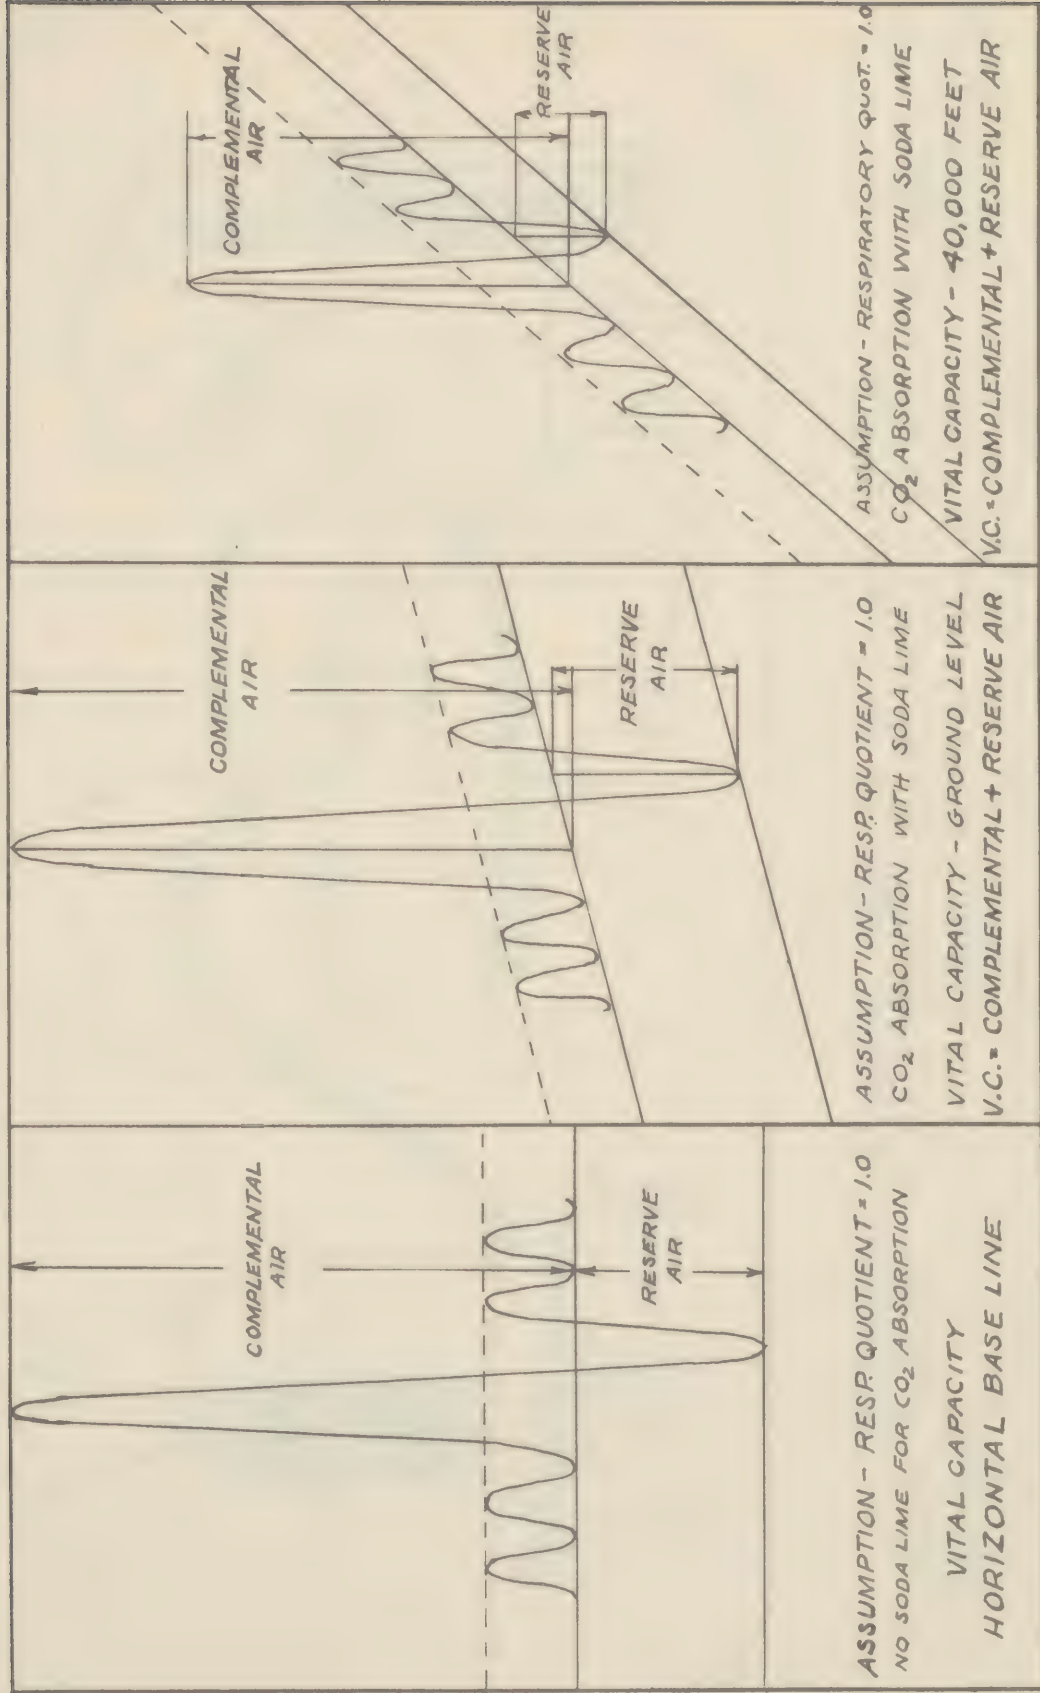 COMPLEMENTAL
AIR
RESERVE
AIR
ASSUMPTION - RESP. QUOTIENT = 1.0
NO SODA LIME FOR CO₂ ABSORPTION
VITAL CAPACITY
HORIZONTAL BASE LINE
COMPLEMENTAL
AIR
RESERVE
AIR
ASSUMPTION - RESP. QUOTIENT = 1.0
CO₂ ABSORPTION WITH SODA LIME
VITAL CAPACITY - GROUND LEVEL
V.C. = COMPLEMENTAL + RESERVE AIR
COMPLEMENTAL
AIR
RESERVE
AIR
ASSUMPTION - RESPIRATORY QUOT. = 1.0
CO₂ ABSORPTION WITH SODA LIME
VITAL CAPACITY - 40,000 FEET
V.C. = COMPLEMENTAL + RESERVE AIR